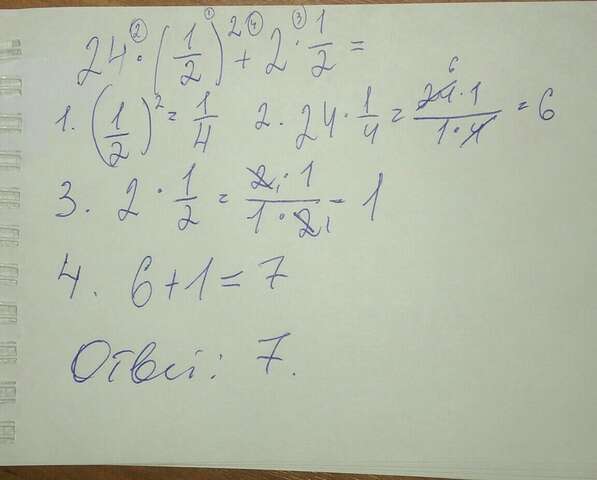 24 · (1/2)² + 2 · 1/2 =
② ① ④ ③
1. (1/2)² = 1/4 2. 24 · 1/4 = 24 · 1 / 1 · 4 = 6
6
3. 2 · 1/2 = 2 · 1 / 1 · 2 = 1
1 1
4. 6 + 1 = 7
Ответ: 7.